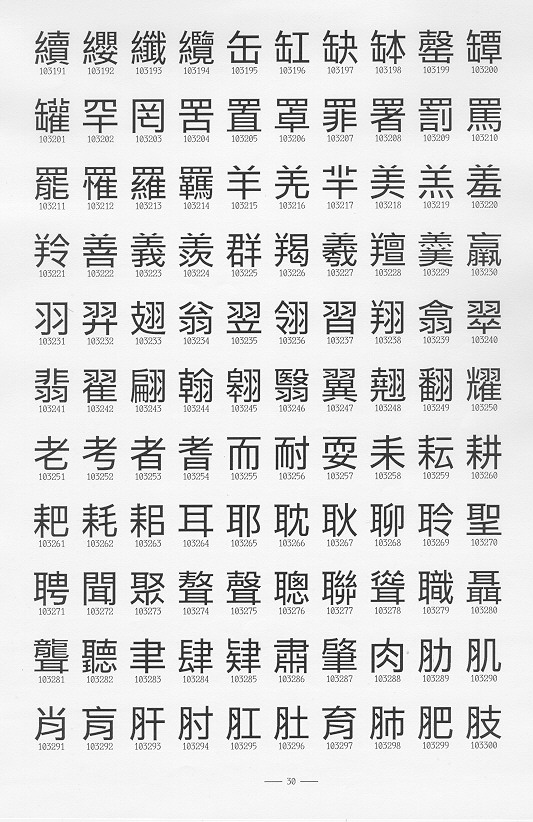 續 纓 纖 纜 缶 缸 缺 缽 罄 罈
103191 103192 103193 103194 103195 103196 103197 103198 103199 103200
罐 罕 罔 罟 置 罩 罪 署 罰 罵
103201 103202 103203 103204 103205 103206 103207 103208 103209 103210
罷 罹 羅 羈 羊 羌 羋 美 羔 羞
103211 103212 103213 103214 103215 103216 103217 103218 103219 103220
羚 善 義 羨 群 羯 羲 羶 羹 羸
103221 103222 103223 103224 103225 103226 103227 103228 103229 103230
羽 羿 翅 翁 翌 翎 習 翔 翕 翠
103231 103232 103233 103234 103235 103236 103237 103238 103239 103240
翡 翟 翩 翰 翱 翳 翼 翹 翻 耀
103241 103242 103243 103244 103245 103246 103247 103248 103249 103250
老 考 者 耆 而 耐 耍 耒 耘 耕
103251 103252 103253 103254 103255 103256 103257 103258 103259 103260
耙 耗 耜 耳 耶 耽 耿 聊 聆 聖
103261 103262 103263 103264 103265 103266 103267 103268 103269 103270
聘 聞 聚 聱 聲 聰 聯 聳 職 聶
103271 103272 103273 103274 103275 103276 103277 103278 103279 103280
聾 聽 聿 肆 肄 肅 肇 肉 肋 肌
103281 103282 103283 103284 103285 103286 103287 103288 103289 103290
肖 肓 肝 肘 肛 肚 育 肺 肥 肢
103291 103292 103293 103294 103295 103296 103297 103298 103299 103300
— 30 —